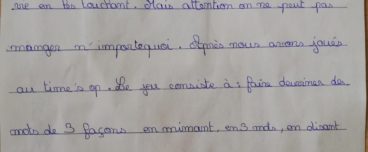 en touchant. Mais attention on ne peut pas
manger n'importequoi. Après nous avons joués
au time's op. Le jeu consiste à : faire deviner des
mots de 3 façons en mimant, en 3 mots, en disant